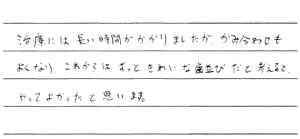 治療には長い時間がかかりましたが、かみ合わせも
よくなり、これからはずっときれいな歯並びだと考えると、
やってよかったと思います。